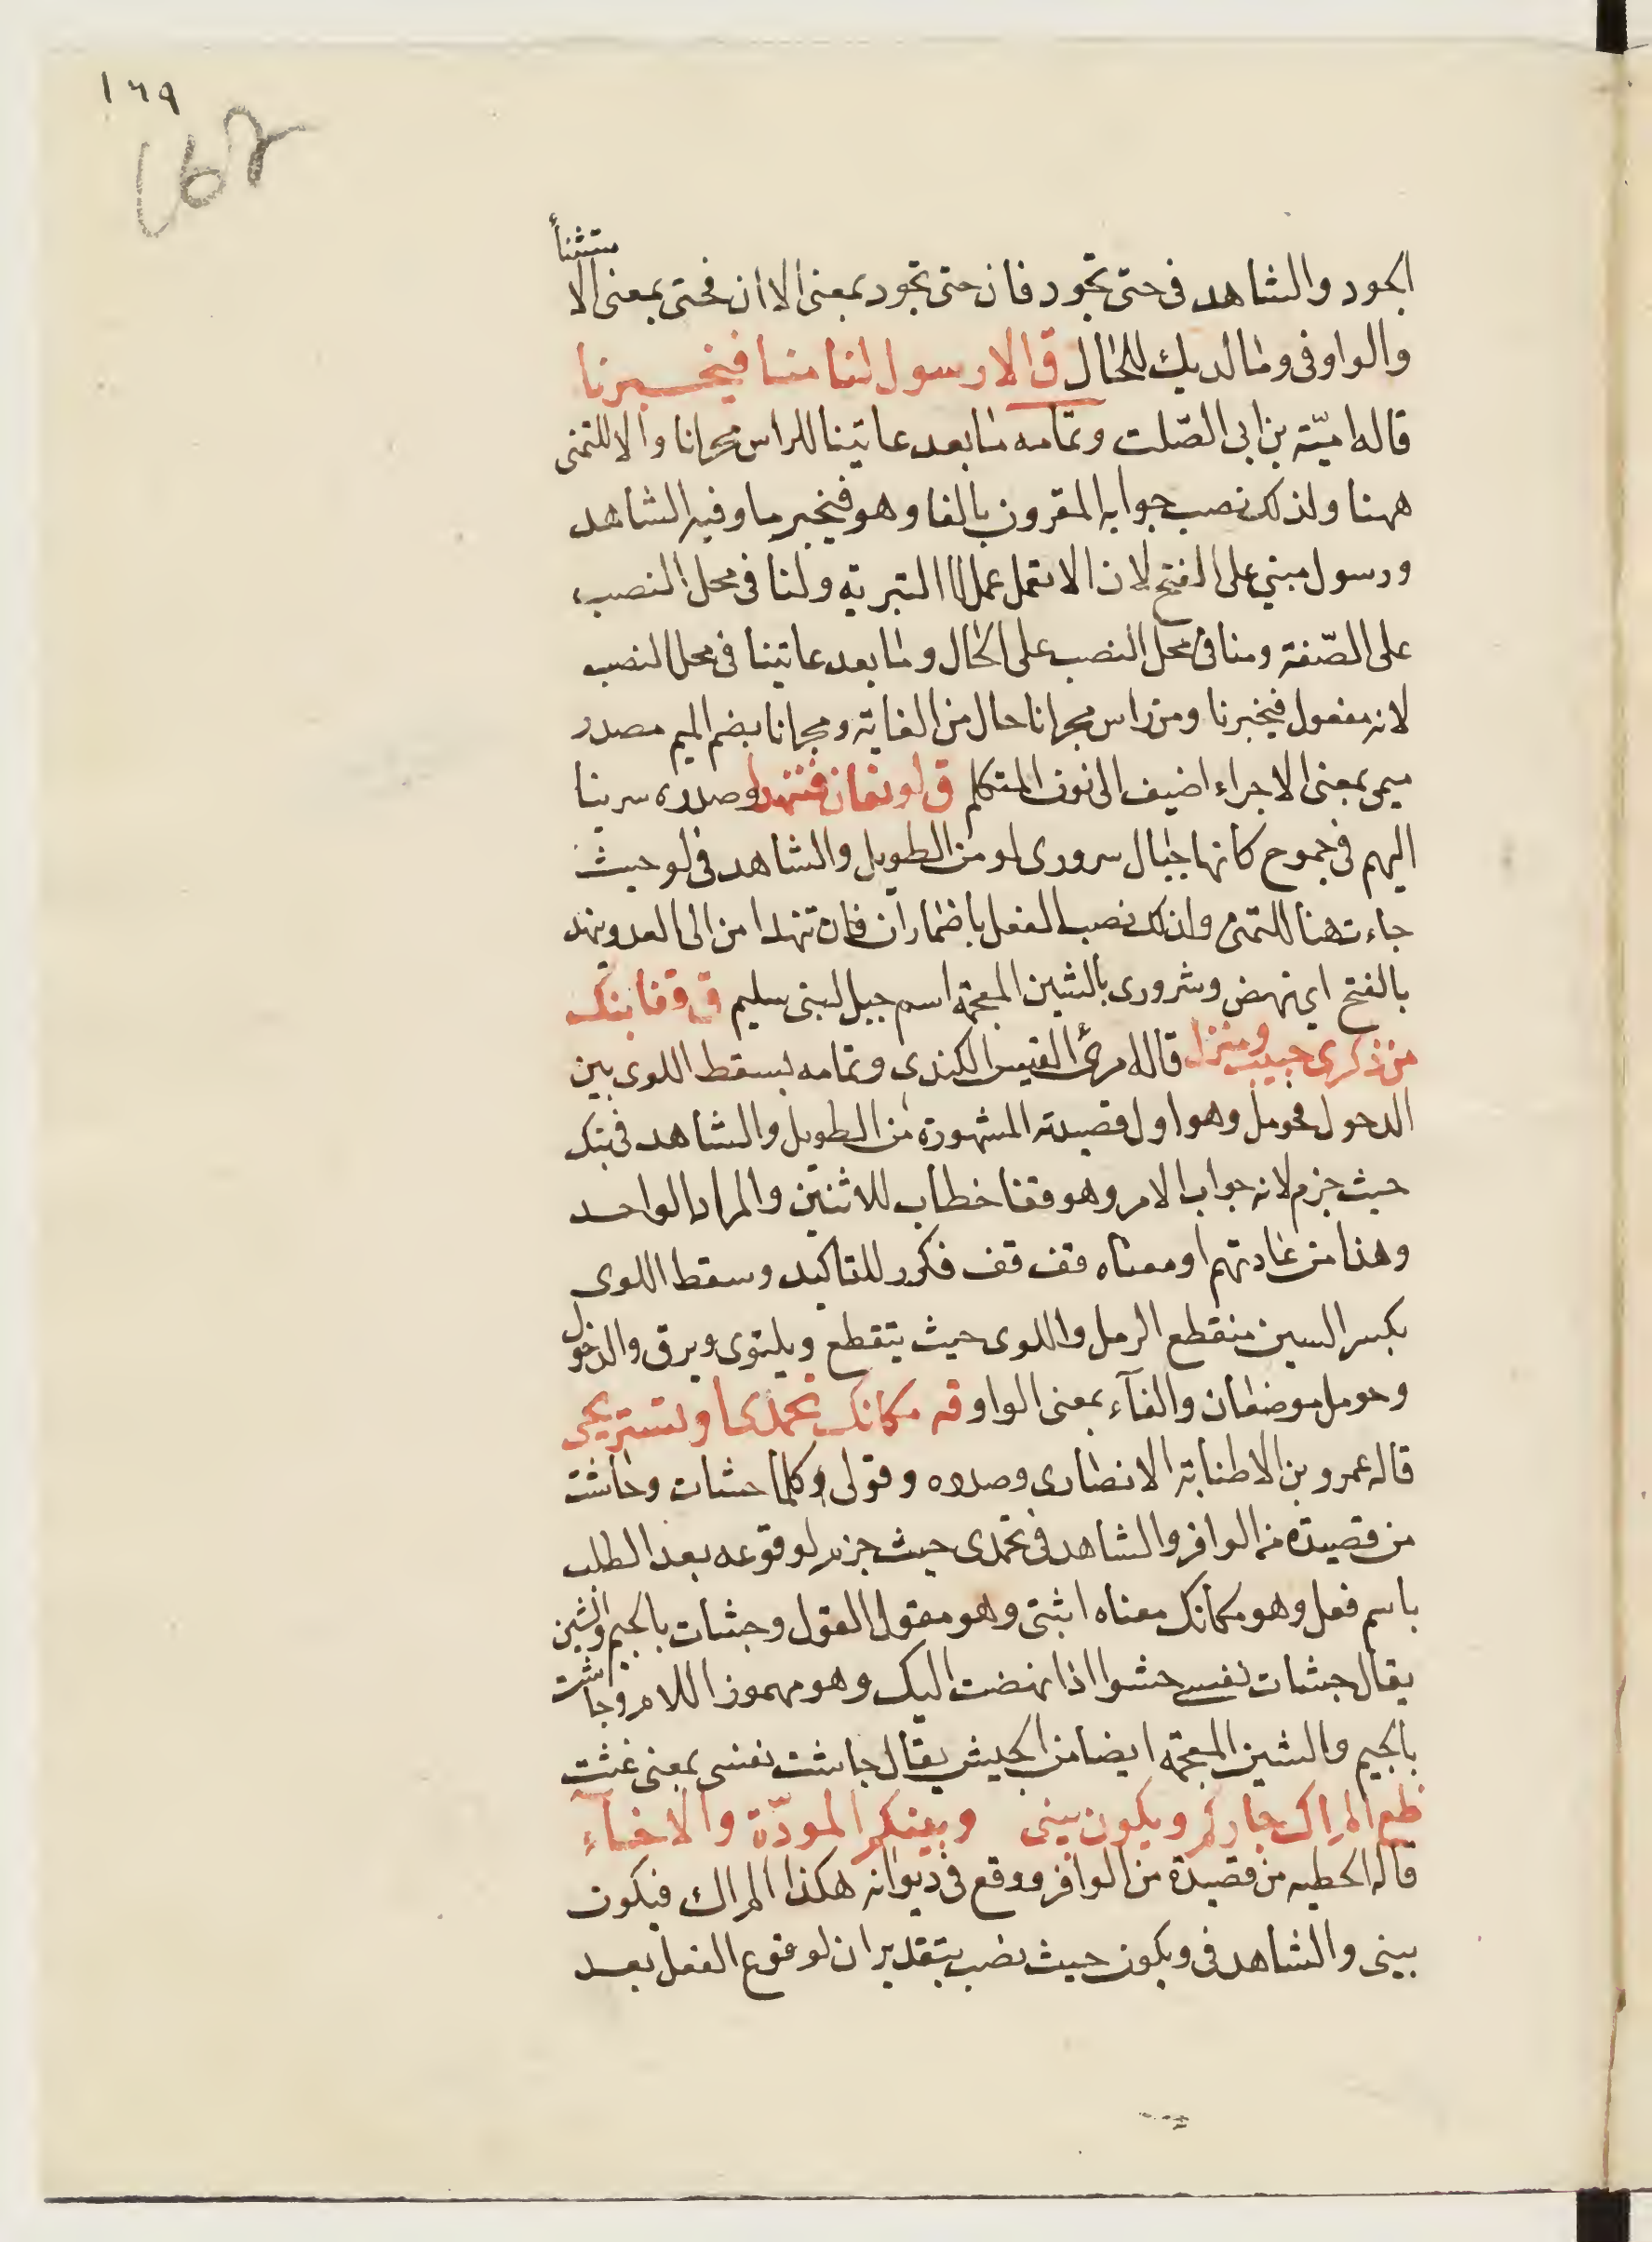 ١٦٩
168
الجود والشاهد فى حتى تجود فان حتى تجود بمعنى الا ان فحتى بمعنى الا
والواو فى وما لديك للحال ق الا رسول لنا منا فيخبرنا
قاله امية بن ابى الصّلت وتمامه ما بعد غايتنا للراس مجرانا والا للتمنى
ههنا ولذلك نصب جوابه المقرون بالفا وهو فيخبرنا وفيه الشاهد
ورسول مبني على الفتح لان الا تعمل عمل لا التبرية ولنا فى محل النصب
على الصّفة ومنا فى محل النصب على الحال وما بعد غايتنا فى محل النصب
لانه مفعول فيخبرنا ومن راس مجرانا حال من الغاية ومجرانا بضم الميم مصدر
ميمى بمعنى الاجراء اضيف الى نون المتكلم ق لو نعان فننهدا وصدره سرينا
اليهم فى جموع كانها جبال سرورى لو من الطويل والشاهد فى لو حيث
جاءت هنا للتمنى ولذلك نصب الفعل باضمار ان فان تنهدا من الى العدو ينهد
بالفتح اى ينهض وشرورى بالشين المعجمة اسم جبل لبنى سليم ق قفا نبك
من ذكرى حبيب ومنزل قاله امرئ القيس الكندى وتمامه بسقط اللوى بين
الدخول فحومل وهو اول قصيدته المشهورة من الطويل والشاهد فى نبك
حيث جزم لانه جواب الامر وهو قفا خطاب للاثنين والمراد الواحد
وهذا من عادتهم او معناه قف قف فكرر للتاكيد وسقط اللوى
بكسر السين منقطع الرمل واللوى حيث يتقطع ويلتوى ويرق والدخول
وحومل موضعان والفآء بمعنى الواو قه مكانك تحمدى او تستريحى
قاله عمرو بن الاطنابة الانصارى وصدره وقولى وكلما حشات وجاشت
من قصيدة من الوافر والشاهد فى تحمدى حيث جزم لوقوعه بعد الطلب
باسم فعل وهو مكانك معناه اثبتى وهو مقول القول وجشات بالجيم والشين
يقال جشات نفسى حشوا اذا نهضت اليك وهو مهموز اللام وجاشت
بالجيم والشين المعجمة ايضا من الجيش يقال جاشت نفسى بمعنى غثت
ظع الم اك جاركم ويكون بينى وبينكم المودّة والاخآء
قاله الحطيه من قصيدة من الوافر ووقع فى ديوانه هكذا الم اك فيكون
بينى والشاهد فى ويكون حيث نصب بتقدير ان لوقوع الفعل بعد